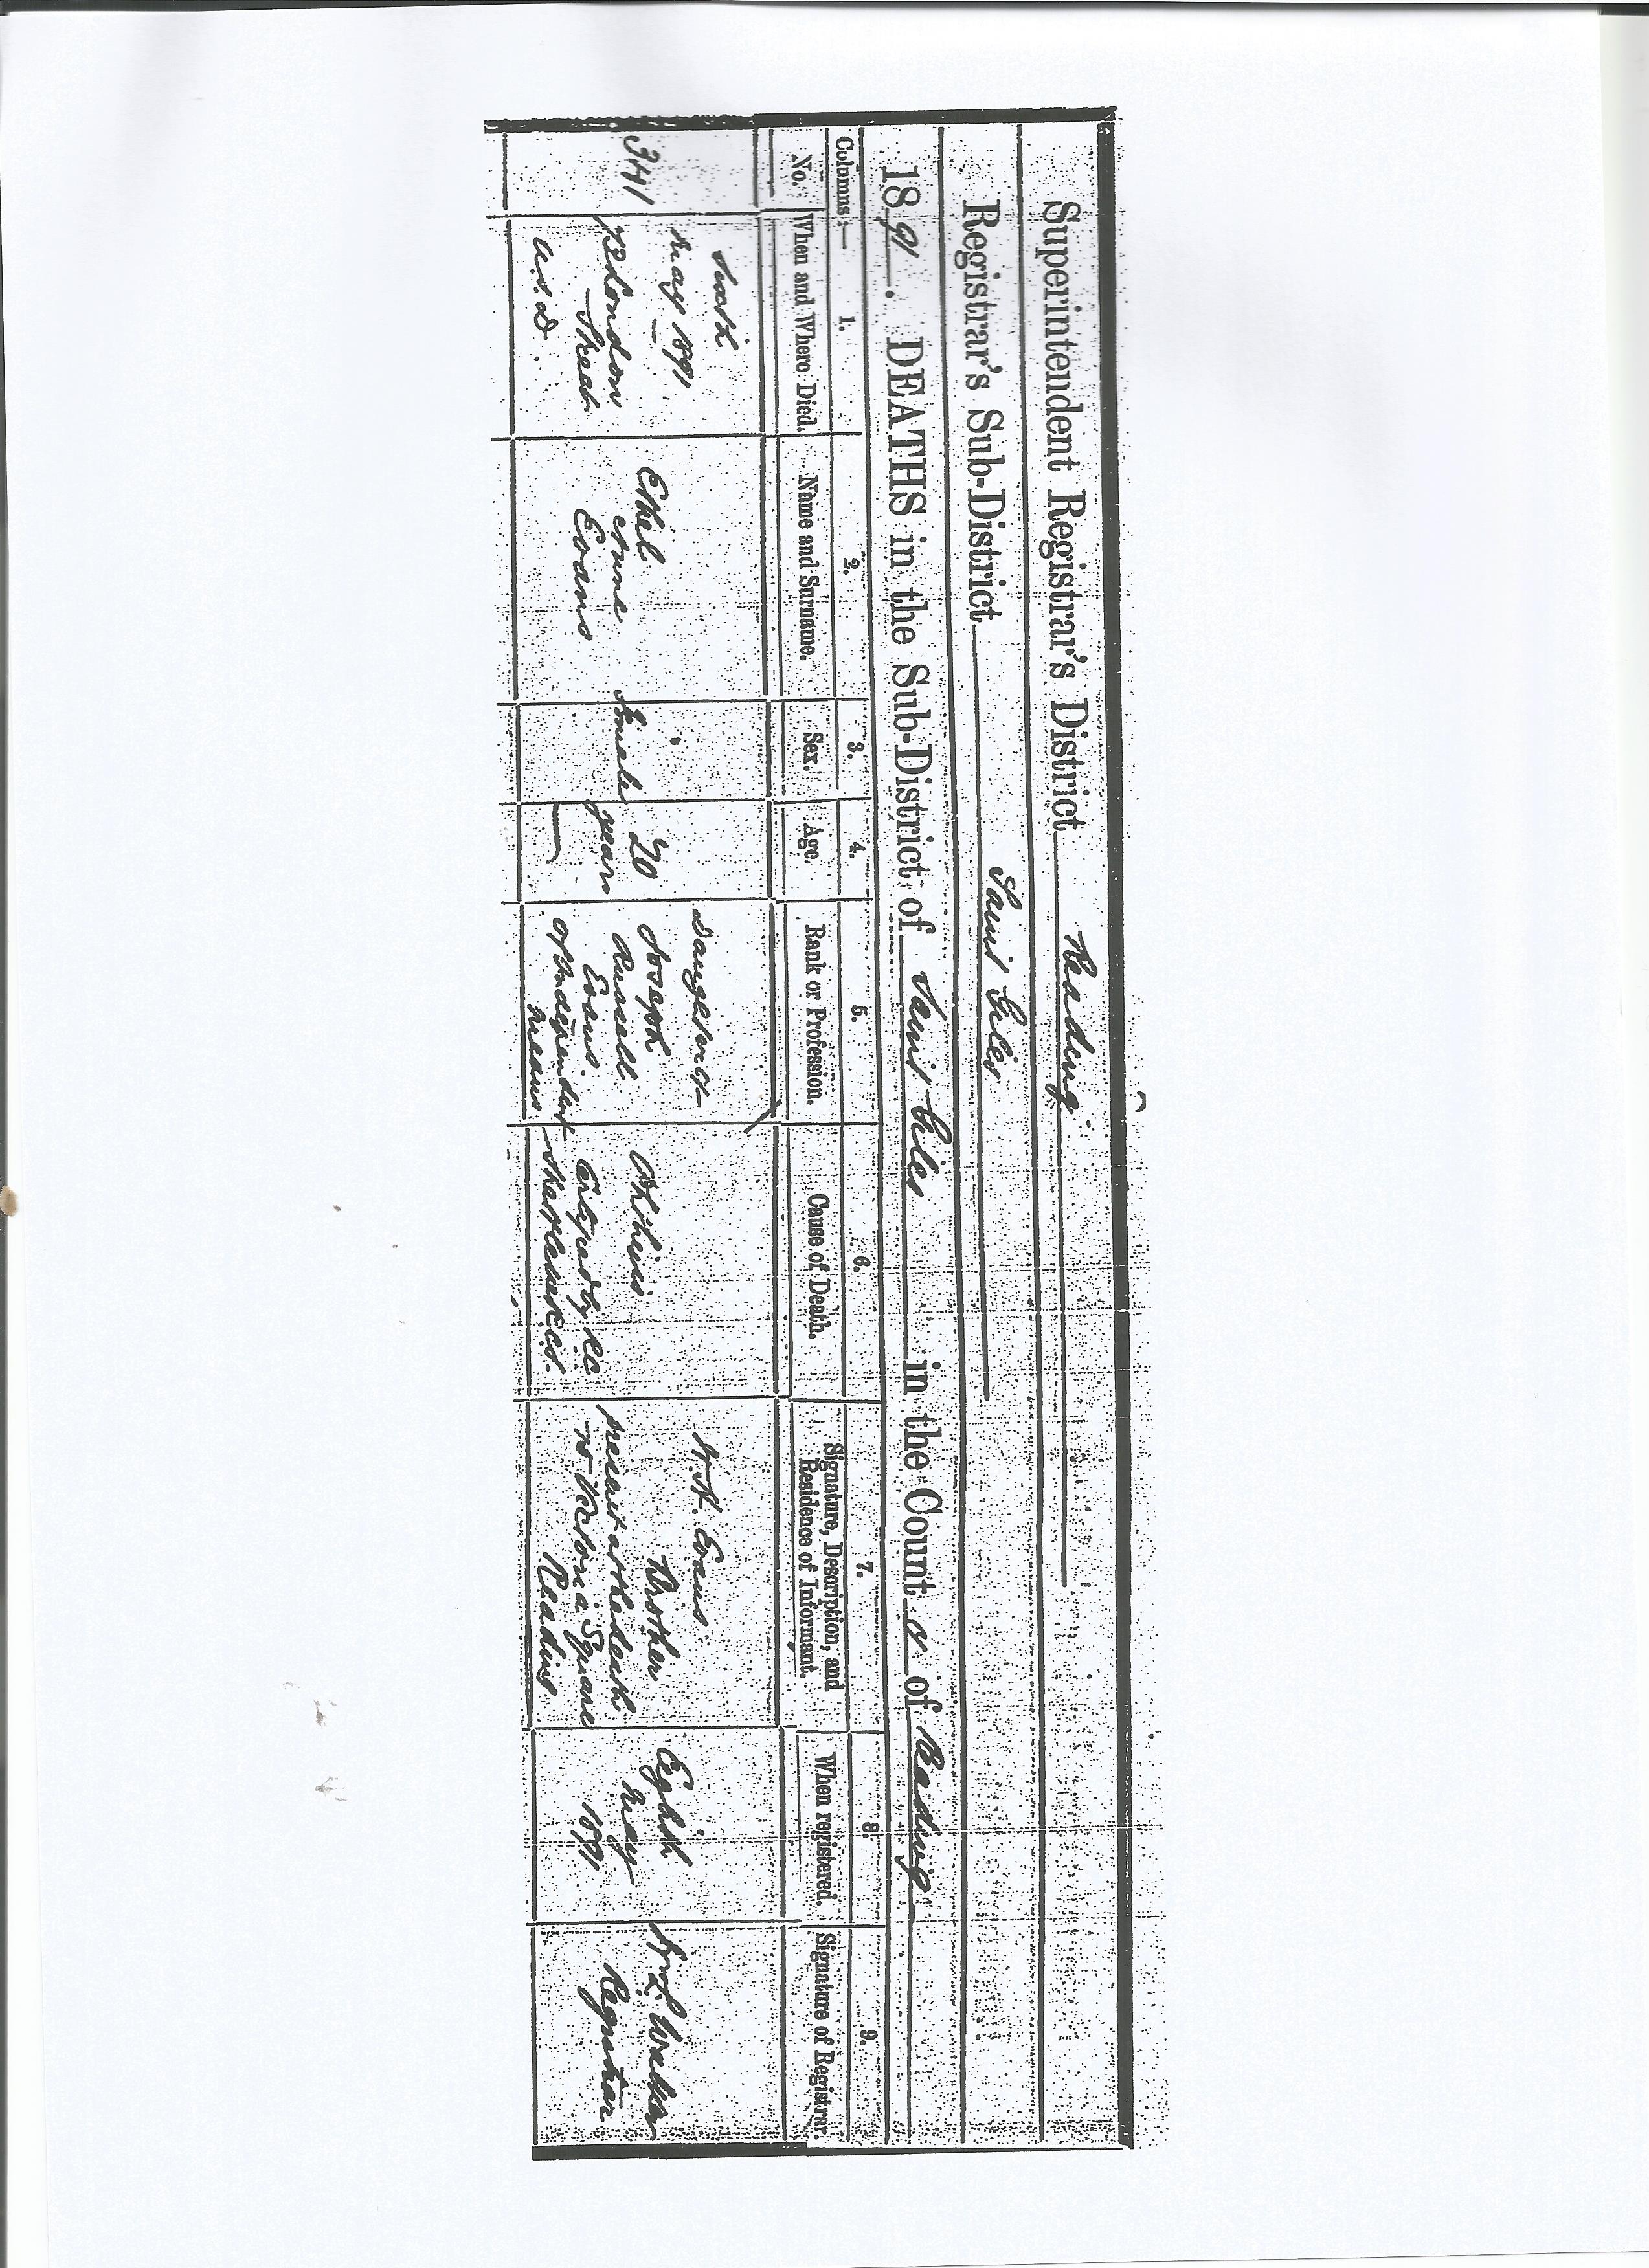 Superintendent Registrar's District Reading
Registrar's Sub-District Saint Giles
1891. DEATHS in the Sub-District of Saint Giles in the County of Reading
Columns:— 1. 2. 3. 4. 5. 6. 7. 8. 9.
No. When and Where Died. Name and Surname. Sex. Age. Rank or Profession. Cause of Death. Signature, Description, and Residence of Informant. When registered. Signature of Registrar.
341
Sixth
May 1891
London
Street
U.S.D.
Ethel
Anne
Evans
Female
20
years
Daughter of
Joseph
Russell
Evans
of Independent
Means
Phthisis
Certified by
Evans
Brother
present at the death
Victoria Square
Reading
Eighth
May
1891
Walker
Registrar